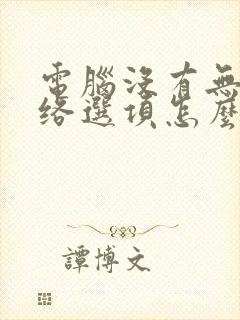 電腦沒有無
絡選項怎麼
譚博文